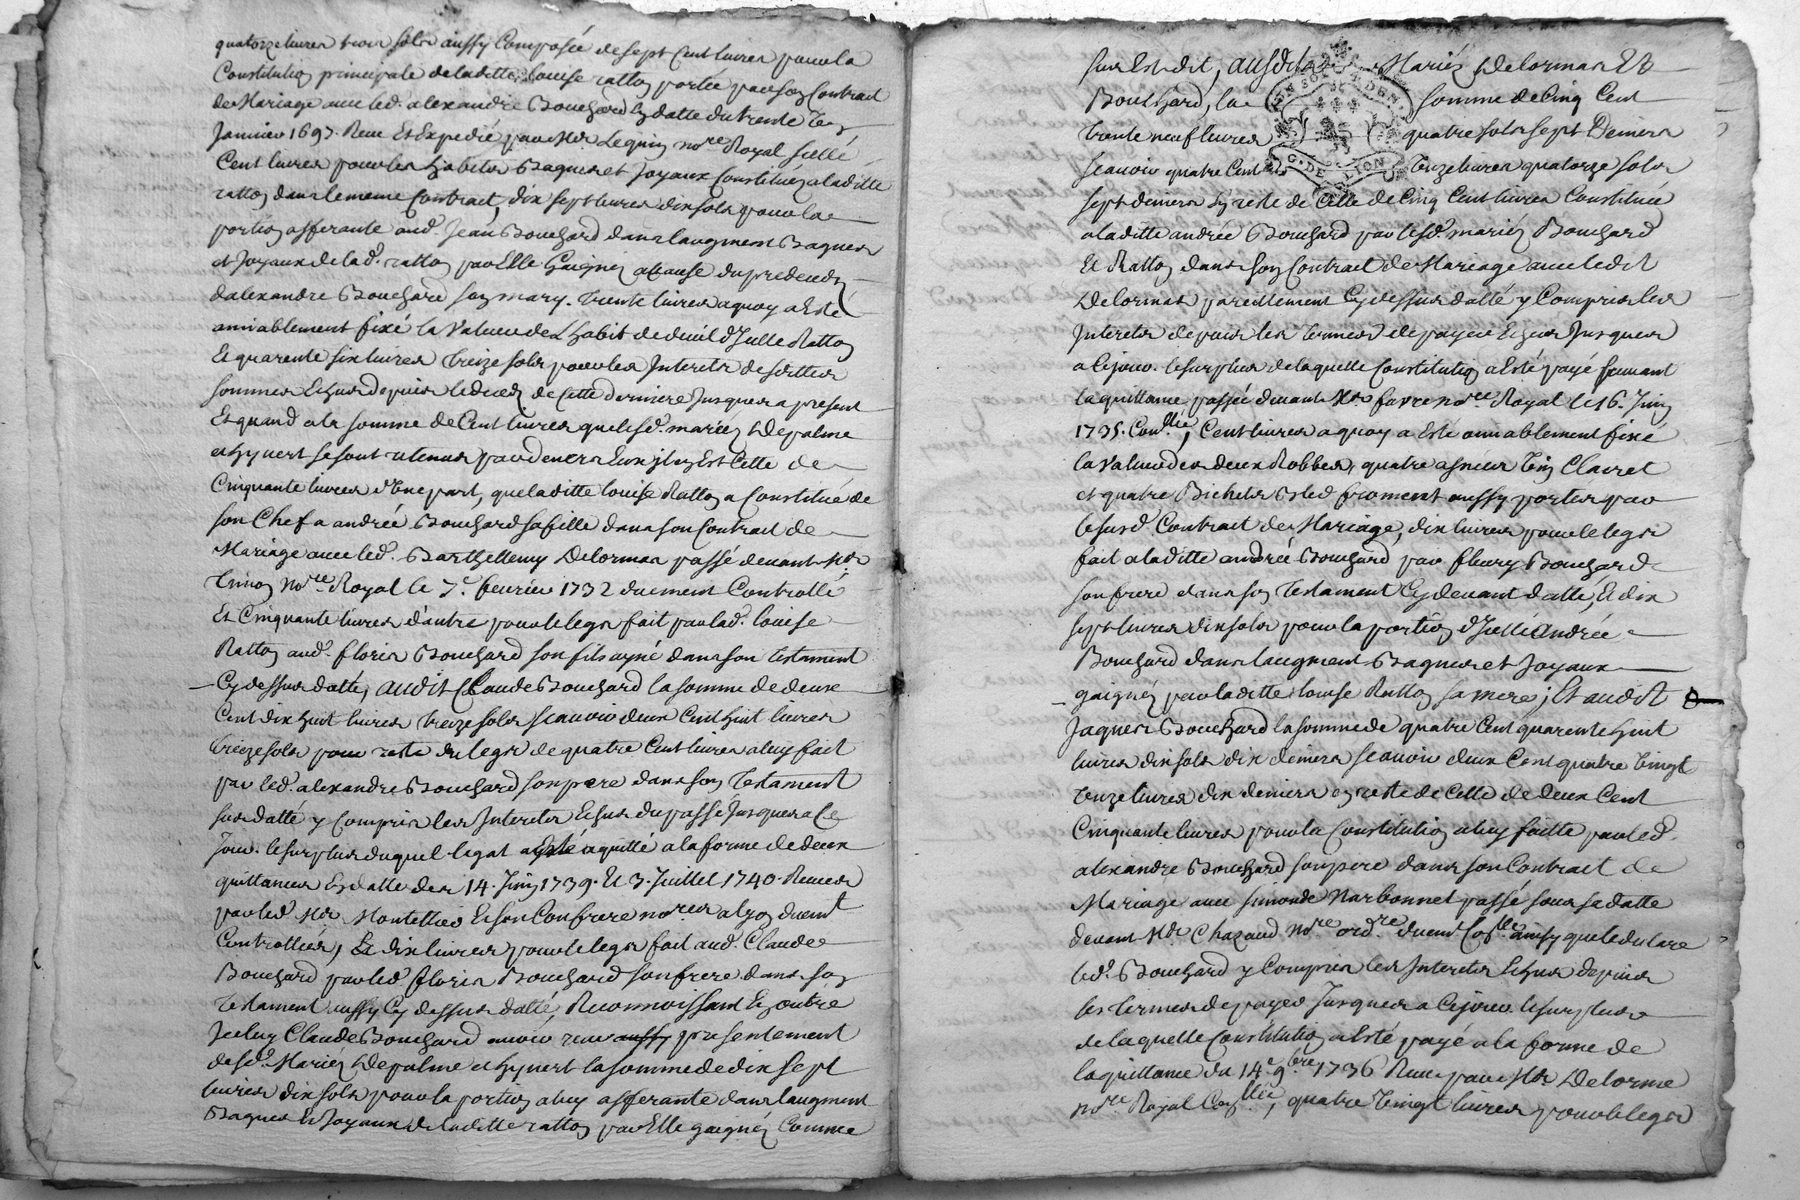 quatorze livres trois sols aussy Composée de sept Cent livres pour la
Constitution principale de laditte Louise ratton portée par son Contrat
de Mariage avec led. alexandre Bouchard en datte du trente un
Janvier 1697. Receu Et Expedié par Me Lequin nore Royal scellé
Cent livres pour les habits Bagues et Joyaux Constitués a laditte
ratton dans le meme Contract, dix sept livres dix sols pour la
portion afferante aud. Jean Bouchard dans l'augment Bagues
et Joyaux de lad. ratton par Elle Gaignés a Cause du predeceds
d'alexandre Bouchard son mary. trente livres a quoy a Esté
amiablement fixé la Valeur de l'habit de deuil d'Icelle Ratton
Et quarente six livres treize sols pour les Interets desdittes
sommes Echus depuis le deces de Cette derniere Jusques a present
Et quand a la somme de Cent livres que lesd. mariés Depalme
et hyvert se sont retenus pardevers Eux Il en Est Celle de
Cinquante livres d'Une part, que laditte louise Ratton a Constitué de
son Chef a andrée Bouchard sa fille dans son Contrat de
Mariage avec led. Barthelemy Delormas passé devant Me
nore Royal le 7e fevrier 1732 duement Controllé
Et Cinquante livres d'autre pour le legs fait par lad. louise
Ratton aud. floris Bouchard son fils ayné dans son testament
Cy dessus datté, audit Claude Bouchard la somme de deux
Cent dix huit livres treize sols scavoir deux Cent huit livres
treize sols pour reste du legs de quatre Cent livres a luy fait
par led. alexandre Bouchard son pere dans son testament
sus datté y Compris les Interets Echus du passé Jusques a Ce
Jour. le surplus duquel legat a Esté aquitté a la forme de deux
quittances En datte des 14. Juin 1739. Et 3. Juillet 1740. Receues
par led. Me Montellier Et son Confrere nores a lyon duemt
Controllées, Et dix livres pour le legs fait aud. Claude
Bouchard par led. floris Bouchard son frere dans son
testament aussy Cy dessus datté, Reconnoissant En outre
Iceluy Claude Bouchard avoir receu aussy presentement
desd. Mariés Depalme et hyvert la somme de dix sept
livres dix sols pour la portion a luy afferante dans l'augment
Bagues Et Joyaux de laditte ratton par Elle gaignés Comme
sus Est dit, ausdits Mariés Delormas Et
Bouchard, la somme de Cinq Cent
trente neuf livres quatre sols sept Deniers
scavoir quatre Cent onze livres quatorze sols
sept deniers En reste de Celle de Cinq Cent livres Constituée
a laditte andrée Bouchard par lesd. mariés Bouchard
Et Ratton dans son Contract de Mariage avec ledit
Delormas pareillement Cy dessus datté y Compris les
Interets depuis les termes de payes Echus Jusques
a Ce jour. le surplus de laquelle Constitution a Esté payé suivant
la quittance passée devant Me favre nore Royal le 16. Juin
1735. Conllée, Cent livres a quoy a Esté amiablement fixé
la Valeur des deux Robbes, quatre asnées Vin Clairet
et quatre Bichets Bled froment aussy portés par
le susd. Contract de Mariage, dix livres pour le legs
fait a laditte andrée Bouchard par fleury Bouchard
son frere dans son testament Cy devant datté, Et dix
sept livres dix sols pour la portion d'Icelle Andrée
Bouchard dans l'augment Bagues et Joyaux
gaignés par laditte louise Ratton sa mere; Et audit
Jaques Bouchard la somme de quatre Cent quarente huit
livres dix sols dix deniers scavoir deux Cent quatre Vingt
onze livres dix deniers en reste de Celle de Deux Cent
Cinquante livres pour la Constitution a luy faitte par led.
alexandre Bouchard son pere dans son Contract de
Mariage avec simonde Narbonnet passé sous sa datte
devant Me Chazaud nore ordre duemt Conllé ainsy que le declare
led. Bouchard y Compris les Interets Echus depuis
les termes de payes Jusques a Ce jour. le surplus
de laquelle Constitution a Esté payé a la forme de
la quittance du 14e 9bre 1736 Receue par Me Delorme
nore Royal Conllée, quatre Vingt livres pour le legs